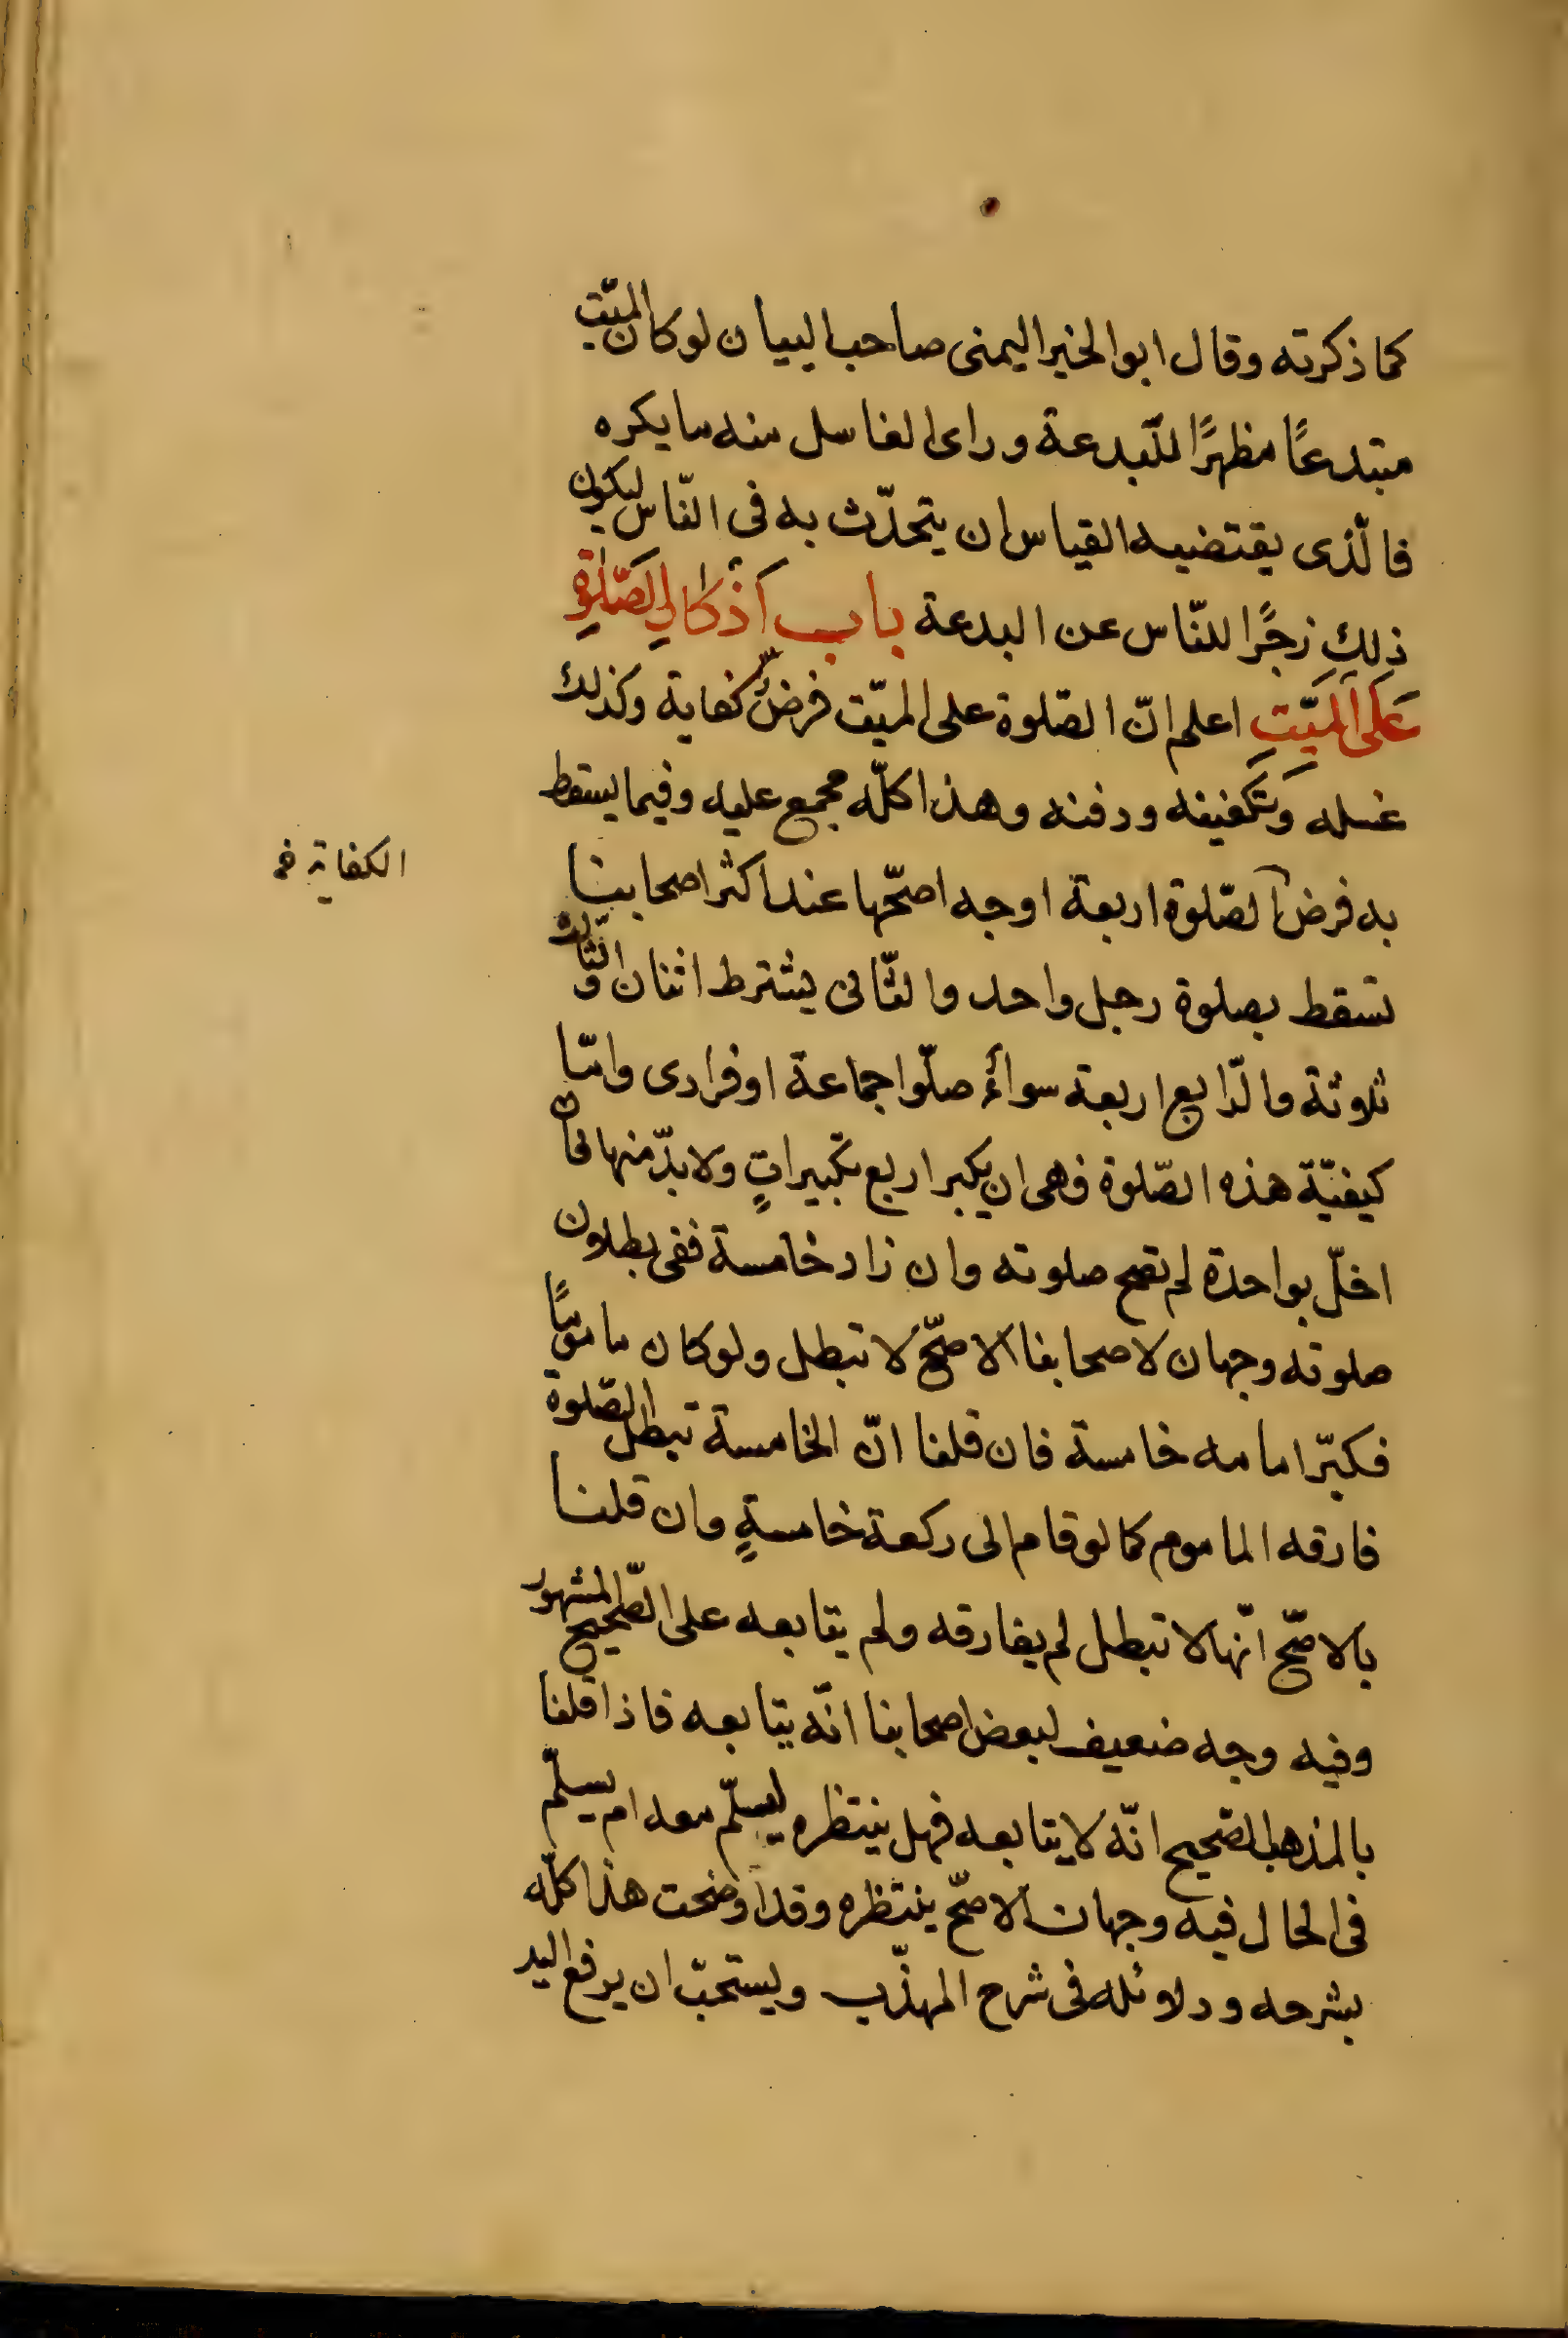 كما ذكرته وقال ابوا الخير اليمنى صاحب البيان لوكان الميّت
مبتدعًا مظهرًا للبدعة وراى الغاسل منه ما يكره
فالّذى يقتضيه القياس ان يتحدّث به فى النّاس ليكون
ذلك زجرًا للنّاس عن البدعة باب أذكار الصّلوةِ
عَلَى المَيِّتِ اعلم انّ الصّلوة على الميّت فرضُ كفاية وكذلك
غسله وَتَكفينه ودفنه وهذا كلّه مجمع عليه وفيما يسقط
به فرض الصّلوة اربعة اوجه اصحّها عند اكثر اصحابنا
الكفاية
تسقط بصلوة رجل واحد والثّانى يشترط اثنان والثّالث
ثلوثة والرّابع اربعة سواءٌ صلّوا جماعة اوفرادى وامّا
كيفيّة هذه الصّلوة فهى ان يكبر اربع تكبيراتٍ ولا بدّ منها فان
اخلّ بواحدة لم تصح صلوته وان زاد خامسة ففى بطلون
صلوته وجهان لاصحابنا الاصحّ لا تبطل ولوكان مامومًا
فكبّر امامه خامسة فان قلنا انّ الخامسة تبطل الصّلوة
فارقه الماموم كما لوقام الى ركعة خامسةٍ وان قلنا
بالاصحّ انّها لا تبطل لم يفارقه ولم يتابعه على الصّحيح المشهور
وفيه وجه ضعيف لبعض اصحابنا انّه يتابعه فاذا قلنا
بالمذهب الصّحيح انّه لا يتابعه فهل ينتظره ليسلّم معه ام يسلّم
فى الحال فيه وجهان الاصحّ ينتظره وقد اوضحت هذا كلّه
بشرحه ودلوئله فى شرح المهذّب ويستحبّ ان يرفع اليد